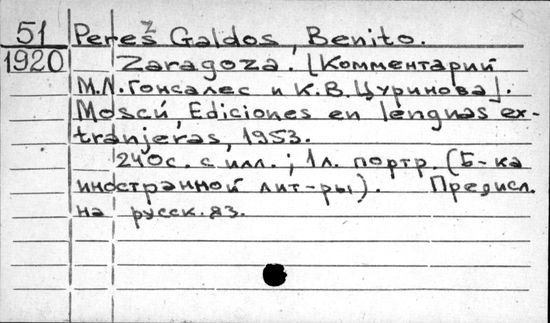 51 Perez Galdos, Benito.
1920 Zaragoza. [Комментарий
М.Л. Гонсалес и К.В. Цуринова].
Moscú, Ediciones en lenguas ex-
tranjeras, 1953.
240с. с илл.; 1л. портр. (Б-ка
иностранной лит-ры). Предисл.
на русск. яз.